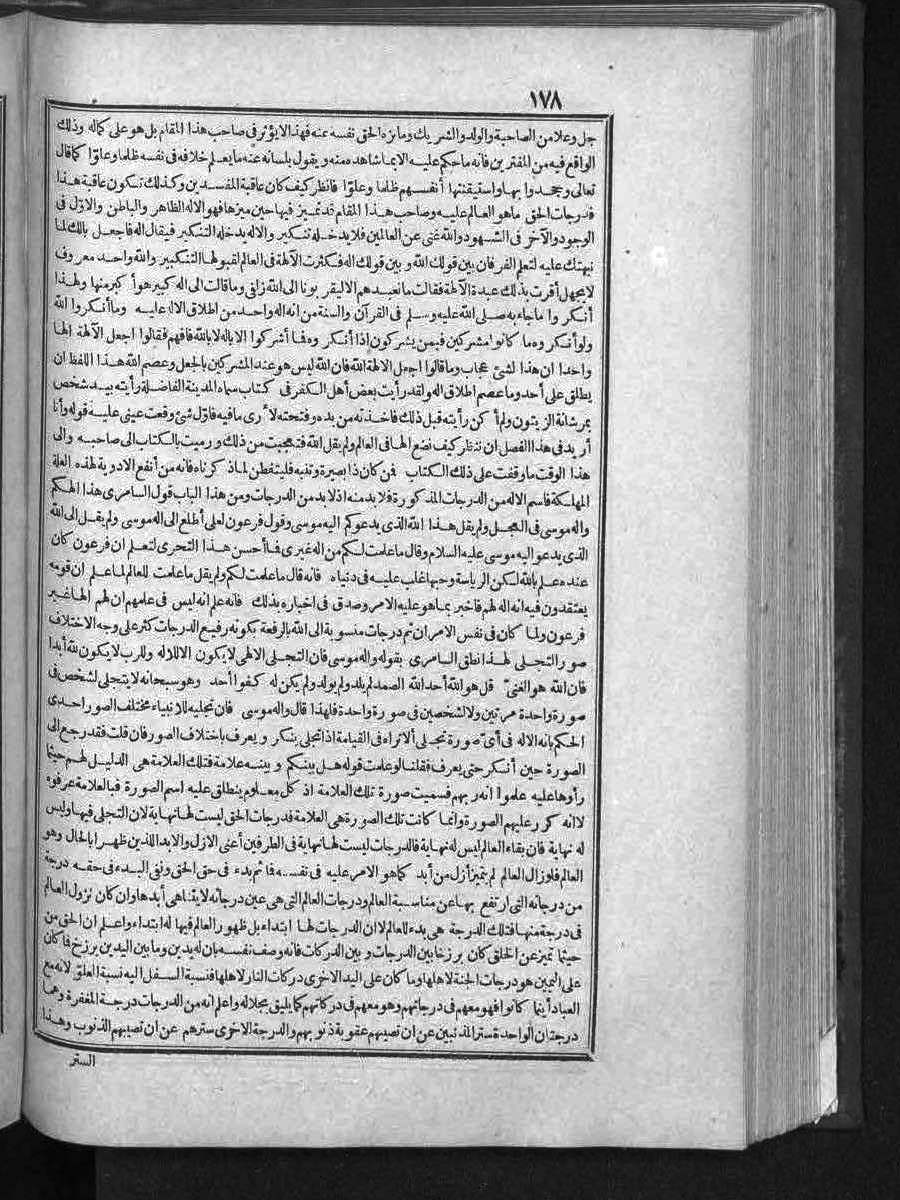 ١٧٨
جل وعلا من الصاحبة والولد والشريك وما نزه الحق نفسه عنه فهذا لا يؤثر فى صاحب هذا المقام بل هو على كماله وذلك
الواقع فيه من المفترين فانه ما حكم عليه الا بما شاهده منه ويقول بلسانه عنه ما يعلم خلافه فى نفسه ظلما وعلوا كما قال
تعالى وجحدوا بها واستيقنتها أنفسهم ظلما وعلوا فانظر كيف كان عاقبة المفسدين وكذلك تكون عاقبة هذا
فدرجات الحق ما هو العالم عليه وصاحب هذا المقام قد تميز فيها حين ميزها فهو الاله الظاهر والباطن والاول فى
الوجود والآخر فى الشهود والله غنى عن العالمين فلا يدخله تنكير والاله يدخله التنكير فيقال اله فاجعل بالك لما
نبهتك عليه لتعلم الفرقان بين قولك الله وبين قولك اله فكثرت الآلهة فى العالم لقبولها التنكير والله واحد معروف
لا يجهل أقرت بذلك عبدة الآلهة فقالت ما نعبدهم الا ليقربونا الى الله زلفى وما قالت الى اله كبير هو أكبر منها ولهذا
أنكروا ما جاء به صلى الله عليه وسلم فى القرآن والسنة من انه اله واحد من اطلاق الاله عليه وما أنكروا الله
ولو أنكروه ما كانوا مشركين فبمن يشركون إذا أنكروه فما أشركوا الا باله لا بالله فافهم فقالوا اجعل الآلهة الها
واحدا ان هذا لشئ عجاب وما قالوا اجعل الآلهة الله فان الله ليس هو عند المشركين بالجعل وعصم الله هذا اللفظ ان
يطلق على أحد وما عصم اطلاق اله ولقد رأيت بعض أهل الكفر فى كتاب سماه المدينة الفاضلة رأيته بيد شخص
بمرشانة الزيتون ولم أكن رأيته قبل ذلك فاخذته من يده وفتحته لأرى ما فيه فاول شئ وقعت عينى عليه قوله وأنا
أريد فى هذا الفصل ان ننظر كيف نضع الها فى العالم ولم يقل الله فتعجبت من ذلك ورميت بالكتاب الى صاحبه والى
هذا الوقت ما وقفت على ذلك الكتاب فمن كان ذا بصيرة وتنبه فليتفطن لما ذكرناه فانه من أنفع الادوية لهذه العلة
المهلكة فاسم الاله من الدرجات المذكورة فلا بد منه اذ لا بد من الدرجات ومن هذا الباب قول السامرى هذا الهكم
واله موسى فى العجل ولم يقل هذا الله الذى يدعوكم اليه موسى وقول فرعون لعلى أطلع الى اله موسى ولم يقل الى الله
الذى يدعو اليه موسى عليه السلام وقال ما علمت لكم من اله غيرى فما أحسن هذا التحرى لتعلم ان فرعون كان
عنده علم بالله لكن الرياسة وحبها غلب عليه فى دنياه فانه قال ما علمت لكم ولم يقل ما علمت للعالم لما علم ان قومه
يعتقدون فيه انه اله لهم فاخبر بما هو عليه الامر وصدق فى اخباره بذلك فانه علم انه ليس فى علمهم ان لهم الها غير
فرعون ولما كان فى نفس الامر ان ثم درجات منسوبة الى الله بالرفعة بكونه رفيع الدرجات كثر على وجه الاختلاف
صور التجلى لهذا نطق السامرى بقوله واله موسى فان التجلى الالهى لا يكون الا للاله وللرب لا يكون لله أبدا
فان الله هو الغنى قل هو الله أحد الله الصمد لم يلد ولم يولد ولم يكن له كفوا أحد وهو سبحانه لا يتجلى لشخص فى
صورة واحدة مرتين ولا لشخصين فى صورة واحدة فلهذا قال واله موسى فان تجليه للانبياء مختلف الصور احدى
الحكم بانه الاله فى أى صورة تجلى ألا تراه فى القيامة اذا تجلى ينكر ويعرف باختلاف الصور فان قلت فقد رجع الى
الصورة حين أنكر حتى يعرف فقلنا لو علمت قوله هل بينكم وبينه علامة فتلك العلامة هى الدليل لهم حيثما
رأوها عليه علموا انه ربهم فسميت صورة تلك العلامة اذ كل معلوم ينطلق عليه اسم الصورة فبالعلامة عرفوه
لا انه كرر عليهم الصورة وانما كانت تلك الصورة هى العلامة فدرجات الحق ليست لها نهاية لان التجلى فيها وليس
له نهاية فان بقاء العالم ليس له نهاية فالدرجات ليست لها نهاية فى الطرفين أعنى الازل والابد اللذين ظهرا بالحال وهو
العالم فلو زال العالم لم يتميز أزل من أبد كما هو الامر عليه فى نفسه فما ثم بدء فى حق الحق ونفى البدء فى حقه درجة
من درجاته التى ارتفع بها عن مناسبة العالم ودرجات العالم التى هى عين درجاته لا يتناهى أبدها وان كان نزول العالم
فى درجة منها فتلك الدرجة هى بدء للعالم لا ان الدرجات لها ابتداء بل ظهور العالم فيها له ابتداء واعلم ان الحق من
حيثما تميز عن الخلق كان برزخا بين الدرجات وبين الدركات فانه وصف نفسه بان له يدين وما بين اليدين برزخ فما كان
على اليمين هو درجات الجنة لاهلها وما كان على اليد الاخرى دركات النار لاهلها فنسبة السفل اليه نسبة العلو لانه مع
العباد أينما كانوا فهو معهم فى درجاتهم وهو معهم فى دركاتهم كما يليق بجلاله واعلم انه من الدرجات درجة المغفرة وهما
درجتان الواحدة ستر المذنبين عن ان تصيبهم عقوبة ذنوبهم والدرجة الاخرى سترهم عن ان تصيبهم الذنوب وهذا
الستر